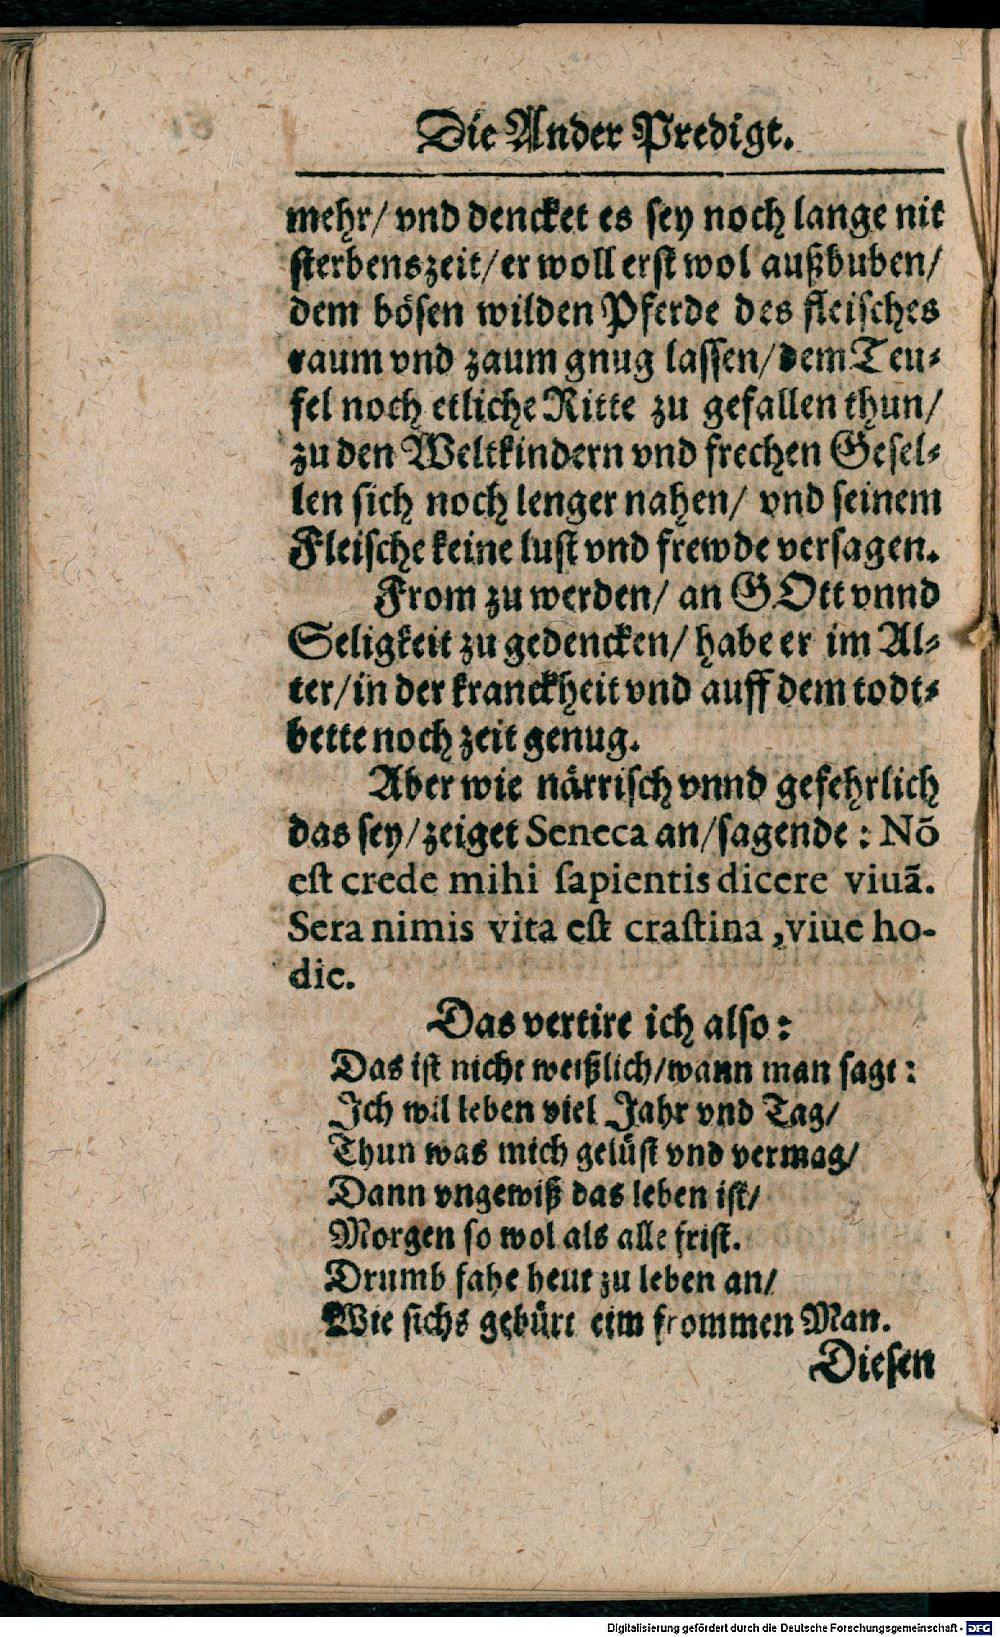 Die Ander Predigt.
mehr/ vnd dencket es sey noch lange nit
sterbenszeit/ er woll erst wol außbuben/
dem bösen wilden Pferde des fleisches
raum vnd zaum gnug lassen/ dem Teu-
fel noch etliche Ritte zu gefallen thun/
zu den Weltkindern vnd frechen Gesel-
len sich noch lenger nahen/ vnd seinem
Fleische keine lust vnd frewde versagen.
From zu werden/ an GOtt vnnd
Seligkeit zu gedencken/ habe er im Al-
ter/ in der kranckheit vnd auff dem todt-
bette noch zeit genug.
Aber wie närrisch vnnd gefehrlich
das sey/ zeiget Seneca an/ sagende: Nō
est crede mihi sapientis dicere viuā.
Sera nimis vita est crastina, viue ho-
die.
Das vertire ich also:
Das ist nicht weißlich/ wann man sagt:
Ich wil leben viel Jahr vnd Tag/
Thun was mich gelüst vnd vermag/
Dann vngewiß das leben ist/
Morgen so wol als alle frist.
Drumb fahe heut zu leben an/
Wie sichs gebürt eim frommen Man.
Diesen
Digitalisierung gefördert durch die Deutsche Forschungsgemeinschaft - DFG